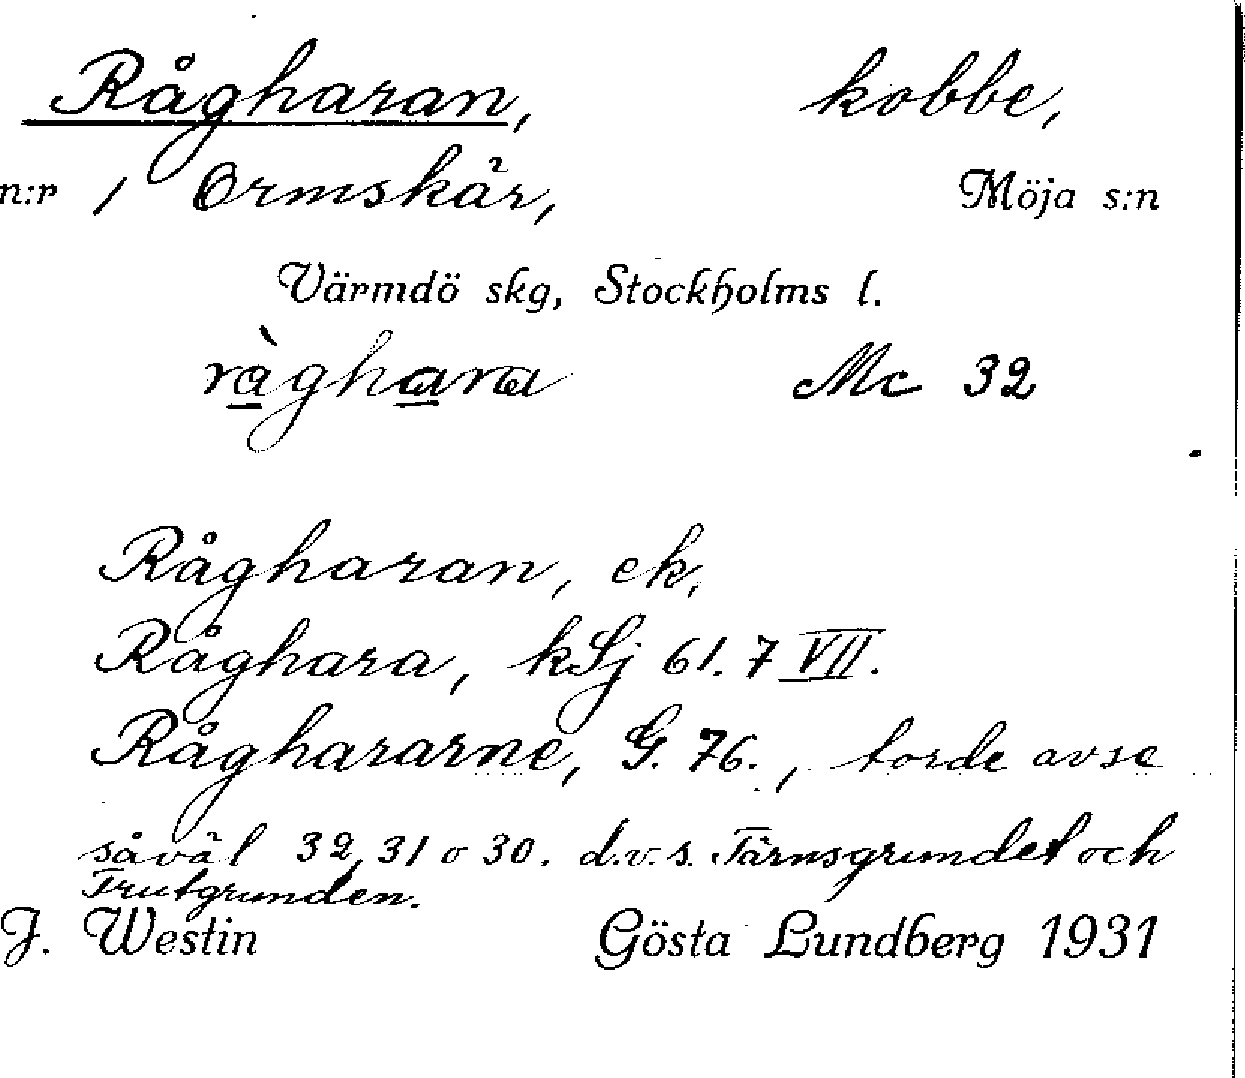 Rågharan, kobbe,
n:r 1 Ormskär, Möja s:n
Värmdö skg, Stockholms l.
ràghara Mc 32
Rågharan, ek.
Råghara, kSj 61. 7 VII.
Råghararne, G. 76., torde avse
såväl 32, 31 o 30. d.v.s. Tärnsgrundet och
Trutgrunden.
J. Westin Gösta Lundberg 1931